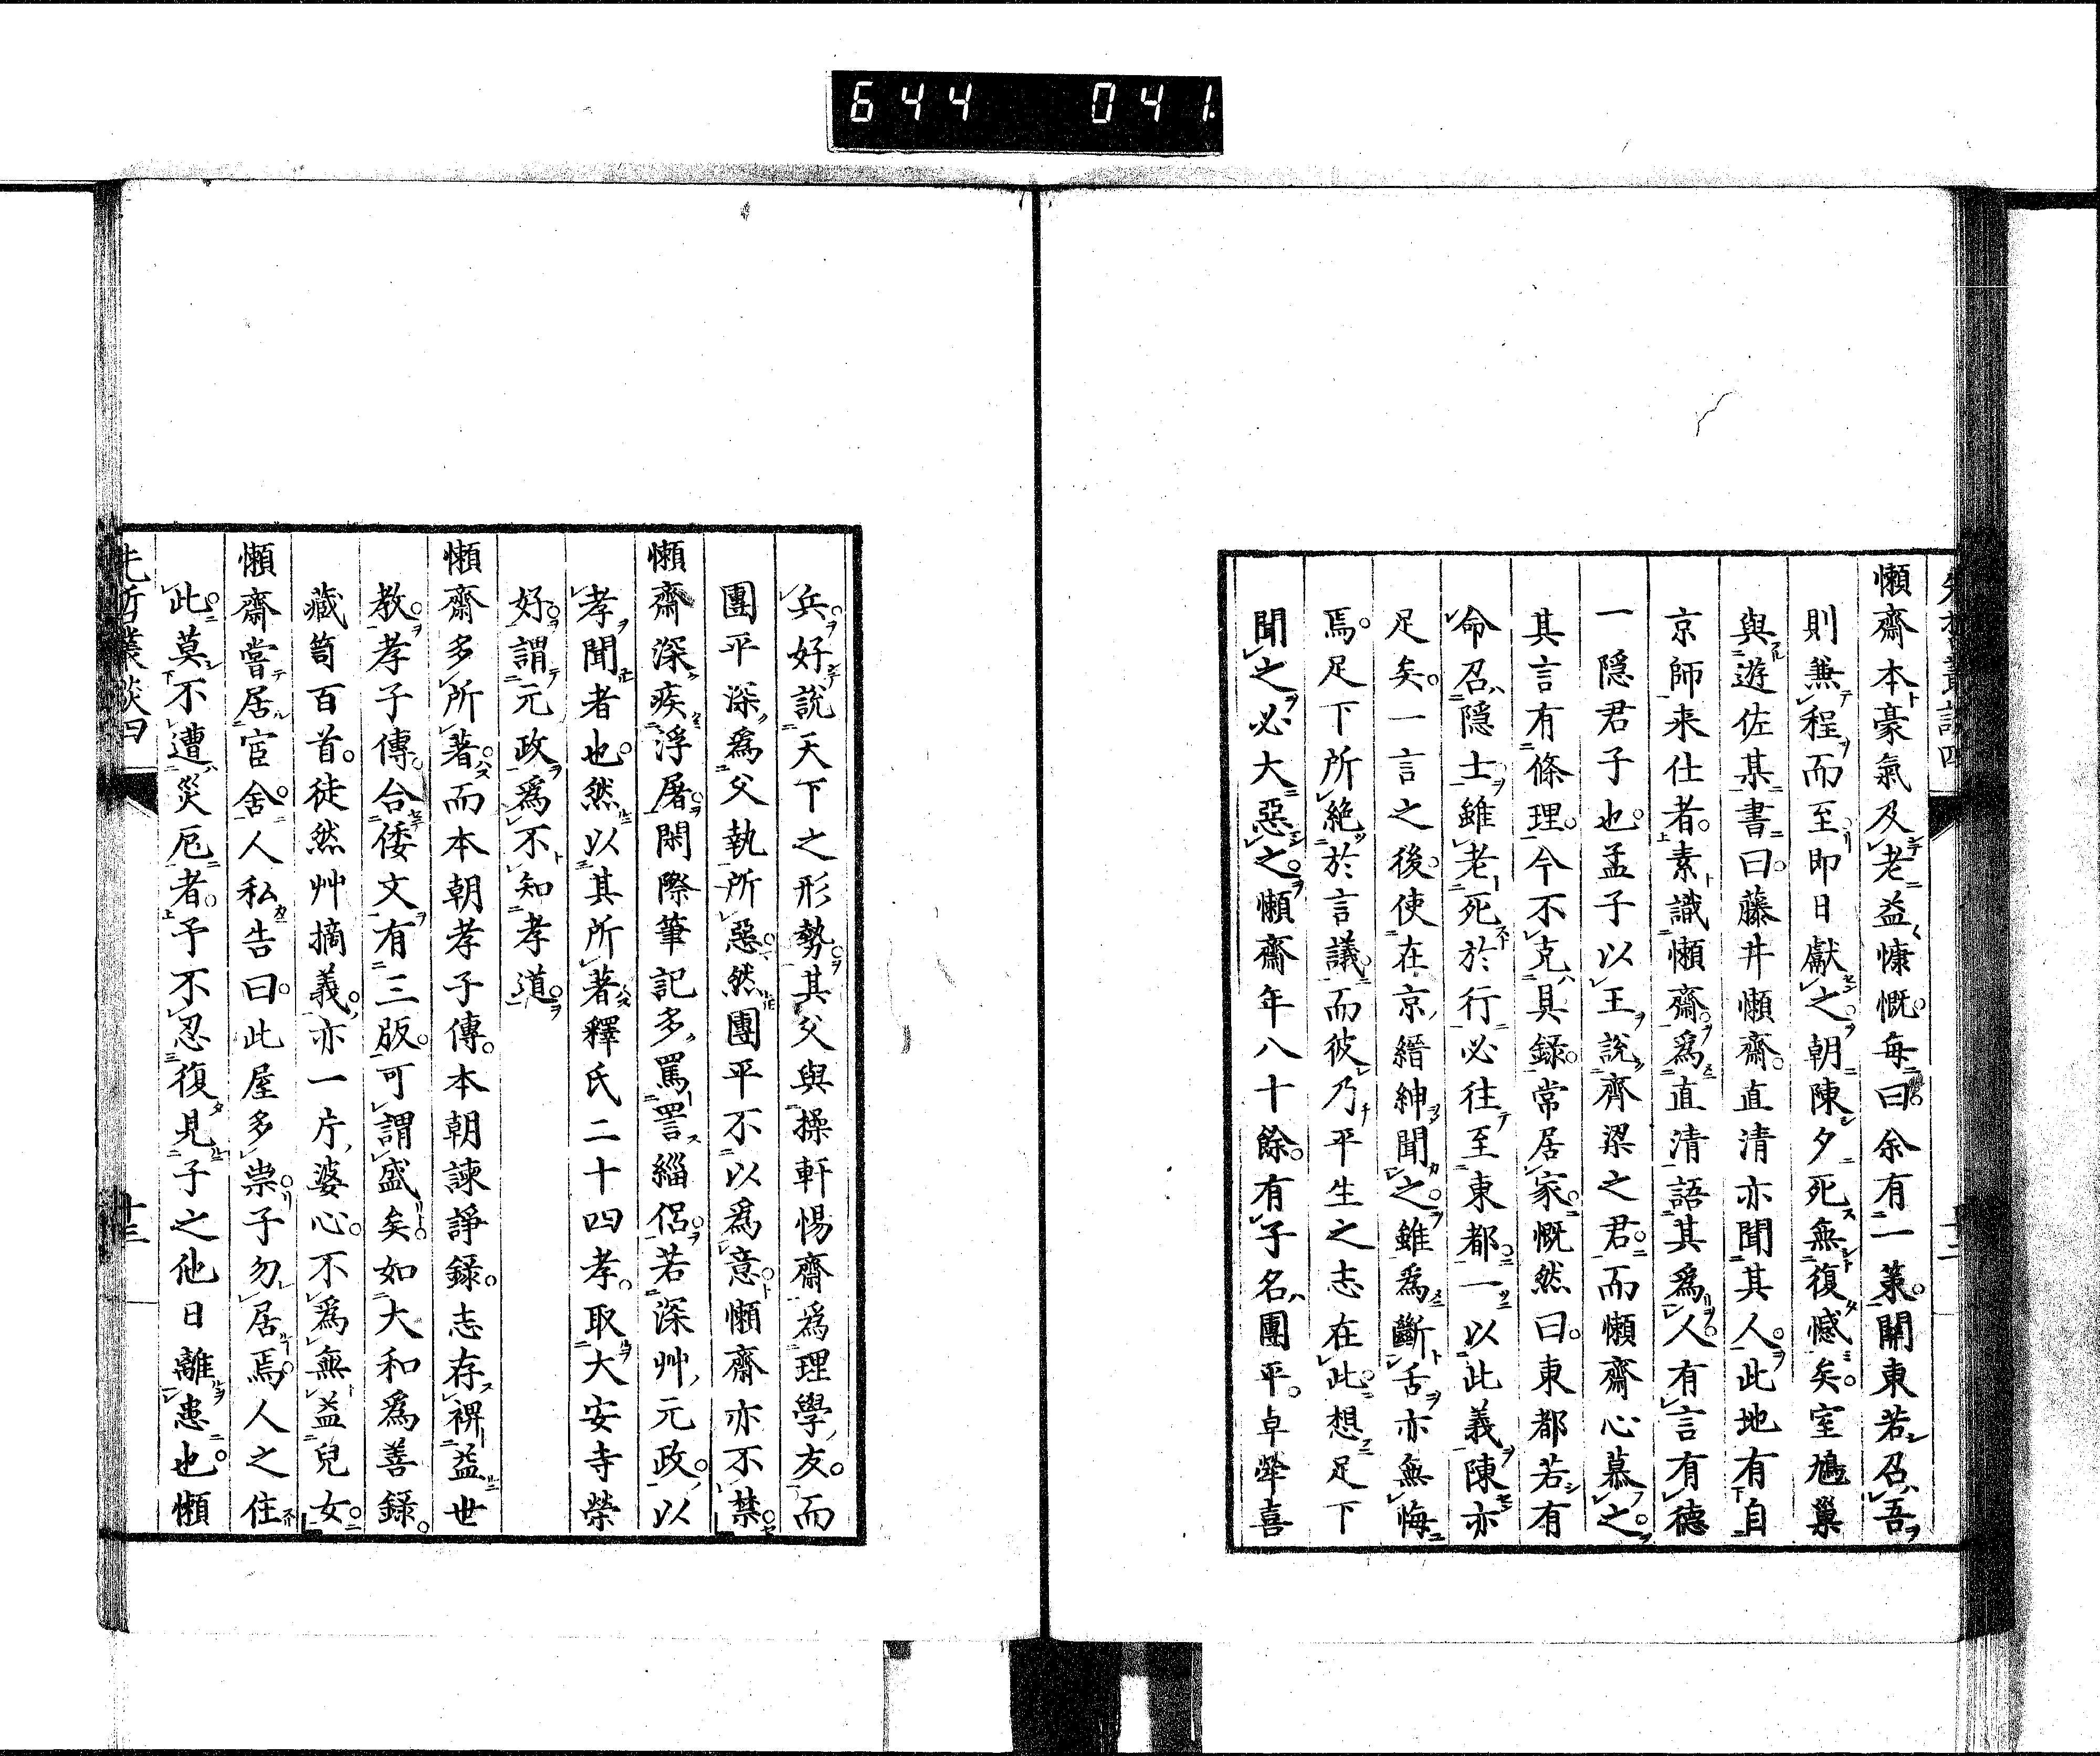 644 041
先哲叢談四 十二
懶齋本豪氣及老益慷慨每曰余有一策關東若召吾
則兼程而至即日獻之朝陳夕死無復憾矣室鳩巢
與遊佐某書曰藤井懶齋直清亦聞其人此地有自
京師来仕者素識懶齋爲直清語其爲人有言有德
一隱君子也孟子以王說齊梁之君而懶齋心慕之
其言有條理今不克具録常居家慨然曰東都若有
命召隱士雖老死於行必往至東都一以此義陳亦
足矣一言之後使在京縉紳聞之雖爲斷舌亦無悔
焉足下所絶於言議而彼乃平生之志在此想足下
聞之必大惡之懶齋年八十餘有子名團平卓犖喜
兵好說天下之形勢其父與操軒惕齋爲理學友而
團平深爲父執所惡然團平不以爲意懶齋亦不禁
懶齋深疾浮屠閑際筆記多罵詈緇侶若深艸元政以
孝聞者也然以其所著釋氏二十四孝取大安寺榮
好謂元政爲不知孝道
懶齋多所著而本朝孝子傳本朝諫諍録志存裨益世
教孝子傳合倭文有三版可謂盛矣如大和爲善録
藏笥百首徒然艸摘義亦一片婆心不爲無益兒女
懶齋嘗居宦舍人私告曰此屋多祟子勿居焉人之住
此莫不遭災厄者予不忍復見子之他日離患也懶
先哲叢談四 十三